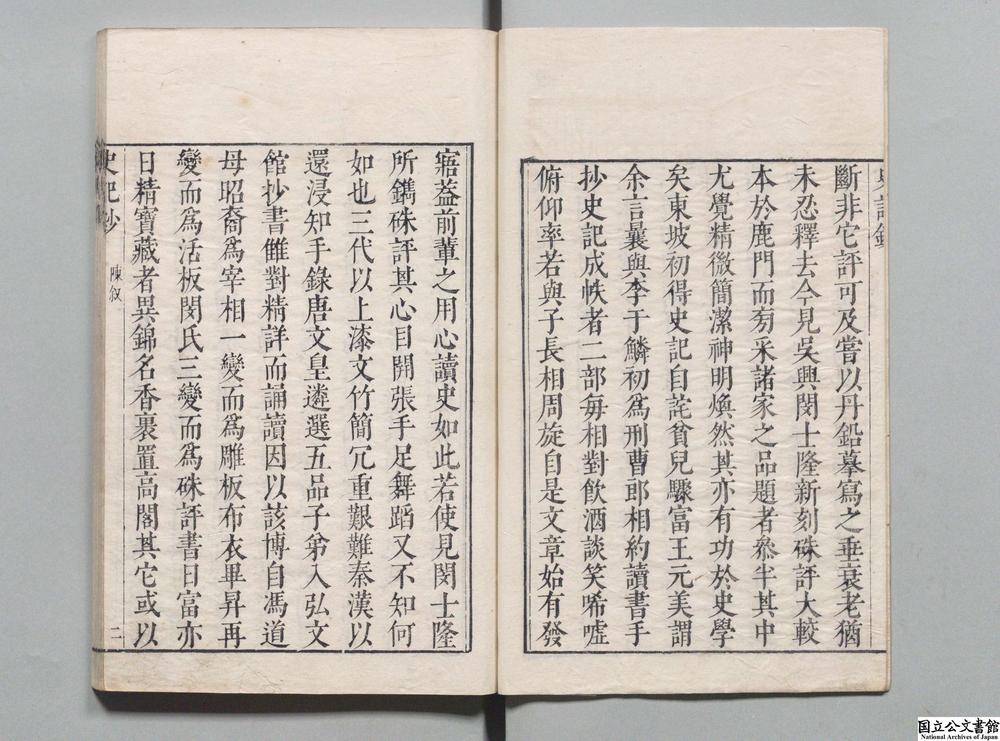 斷非它評可及嘗以丹鉛摹寫之垂衰老猶
未忍釋去今見吳興閔士隆新刻硃評大較
本於鹿門而旁采諸家之品題者叅半其中
尤覺精微簡潔神明煥然其亦有功於史學
矣東坡初得史記自詫貧兒驟富王元美謂
余言曩與李于鱗初爲刑曹郎相約讀書手
抄史記成帙者二部每相對飲酒談笑唏噓
俯仰率若與子長相周旋自是文章始有發
寤葢前軰之用心讀史如此若使見閔士隆
所鐫硃評其心目開張手足舞蹈又不知何
如也三代以上漆文竹簡冗重艱難秦漢以
還浸知手錄唐文皇遴選五品子弟入弘文
館抄書雠對精詳而誦讀因以該博自馮道
母昭裔爲宰相一變而爲雕板布衣畢昇再
變而爲活板閔氏三變而爲硃評書日富亦
日精寶藏者異錦名香裹置高閣其它或以
史記抄
陳叙
二
国立公文書館
National Archives of Japan